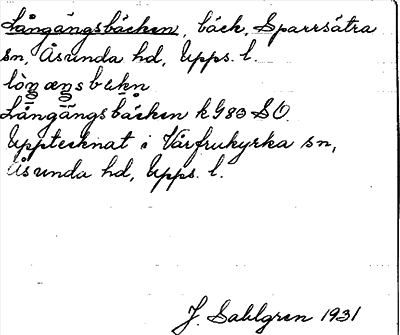 Långängsbäcken, bäck, Sparrsätra
sn, Åsunda hd, Upps. l.
Långängsbäcken kG83 SO.
Upptecknat i Vårfrukyrka sn,
Åsunda hd, Upps. l.
J. Sahlgren 1931